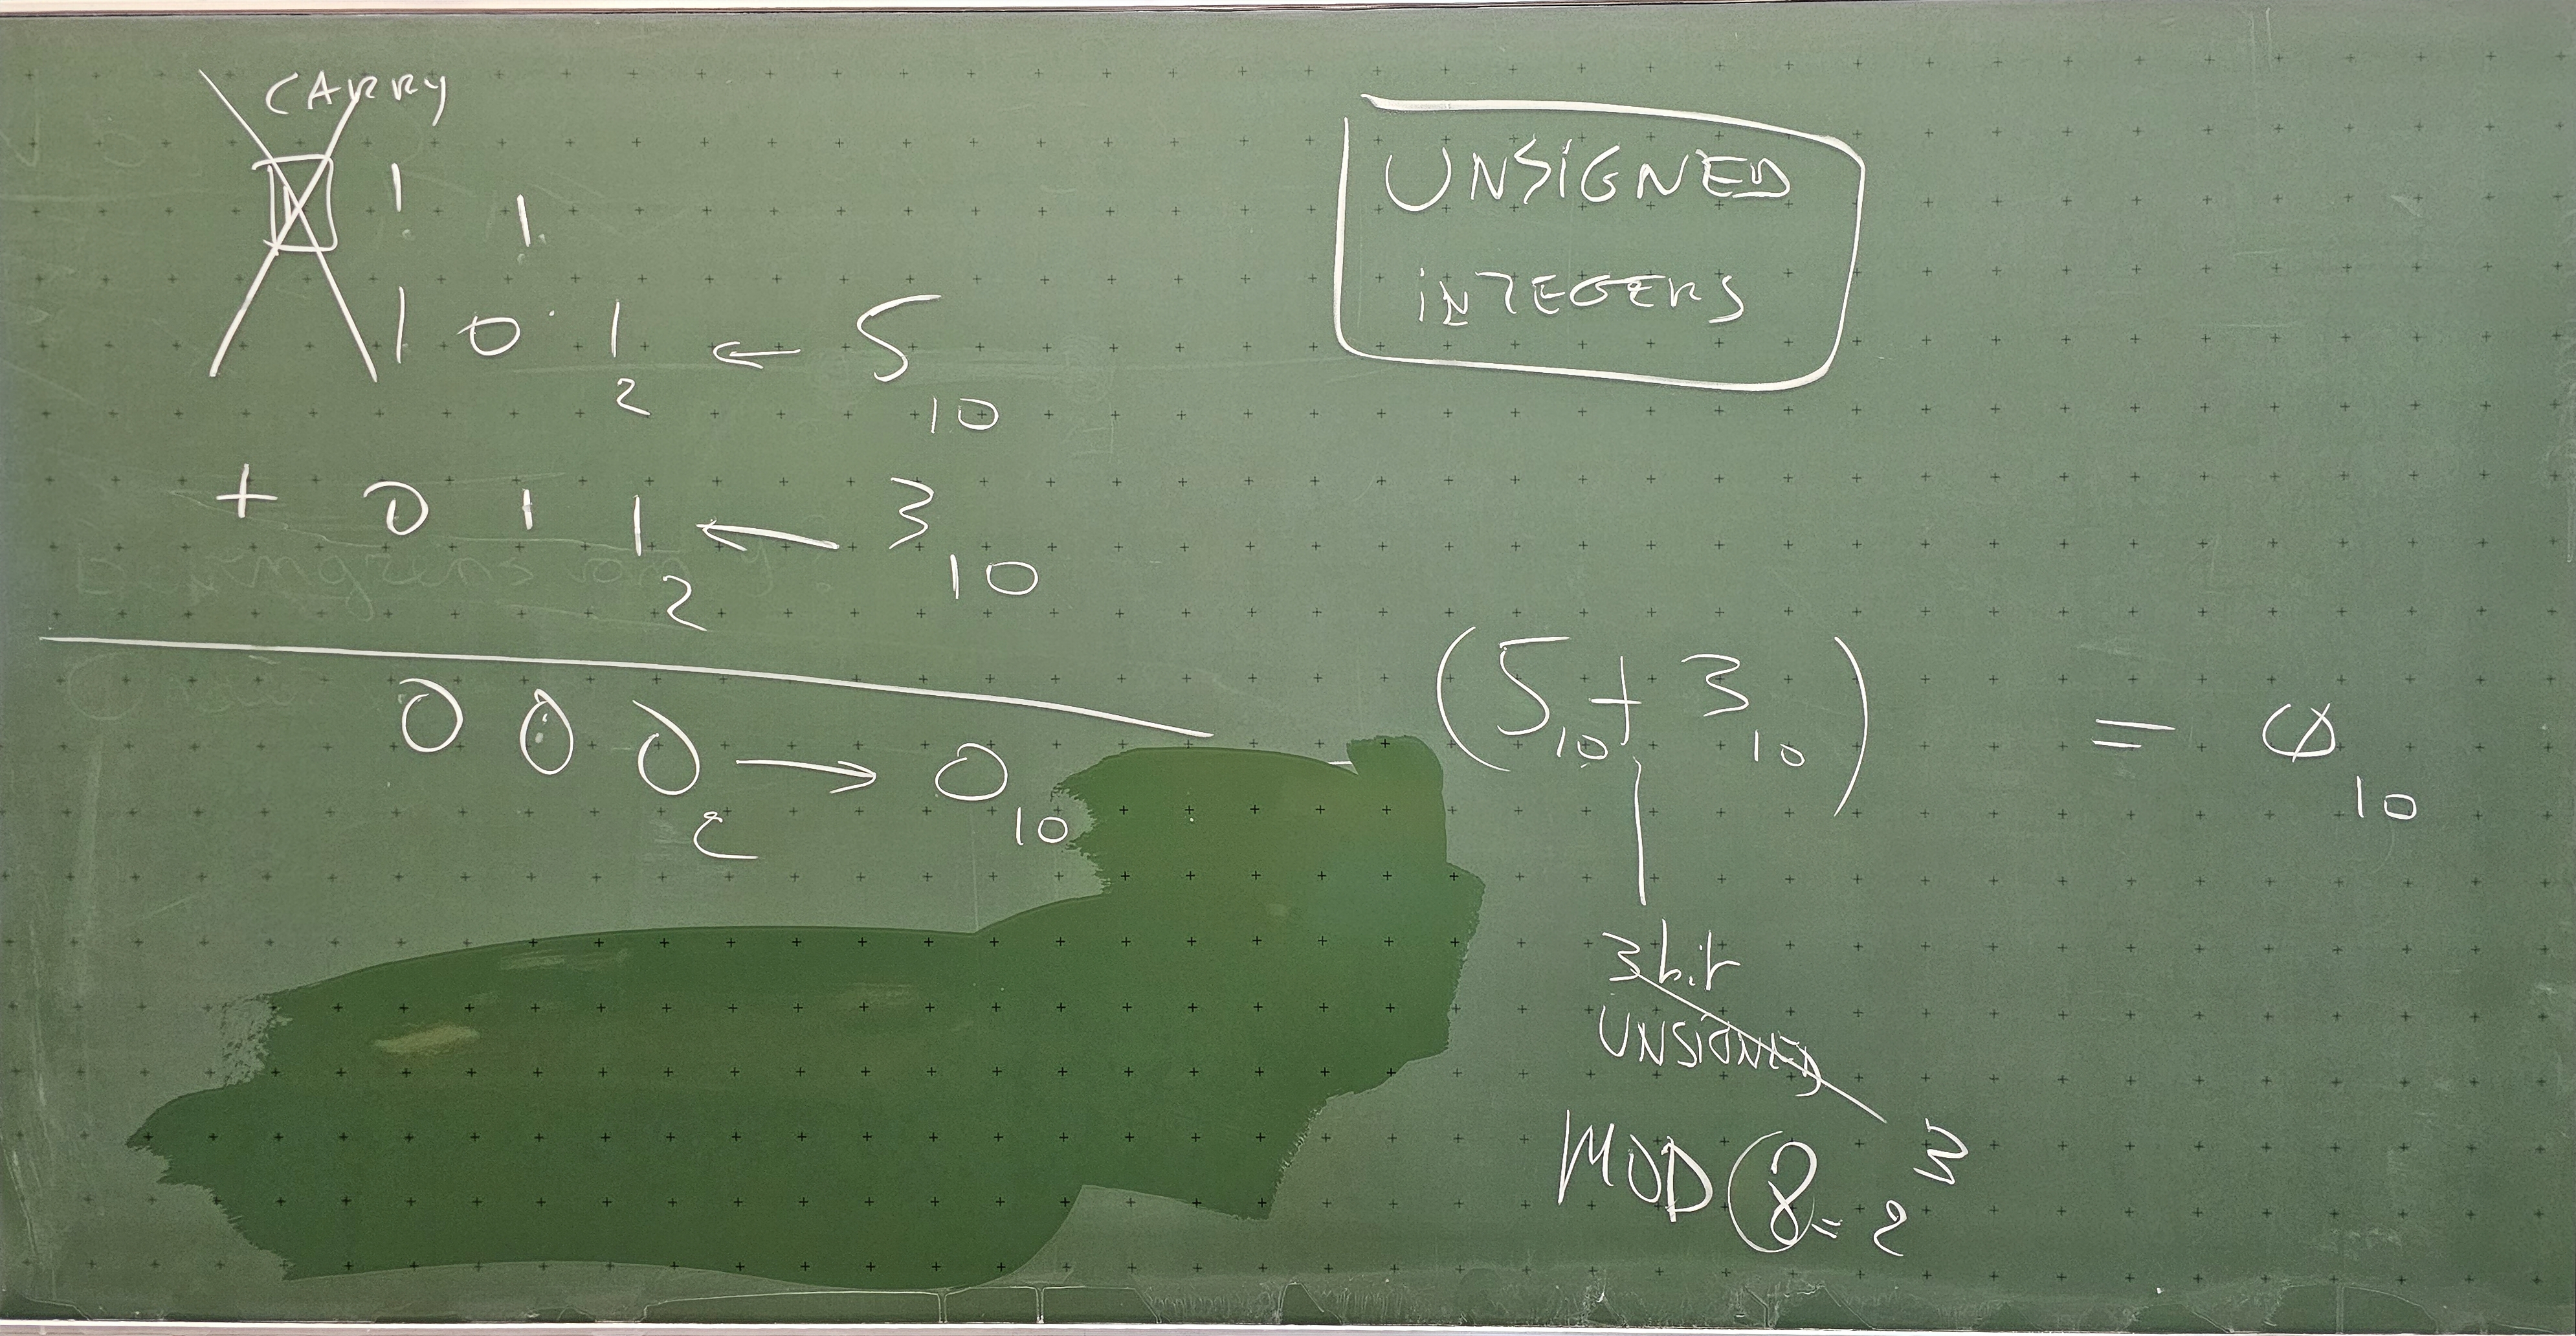 CARRY
1 1 1
1 0 1₂ ← 5₁₀
+ 0 1 1₂ ← 3₁₀
0 0 0₂ → 0₁₀
UNSIGNED
INTEGERS
(5₁₀ + 3₁₀) = 0₁₀
3 bit
UNSIGNED
MOD 8 = 2³